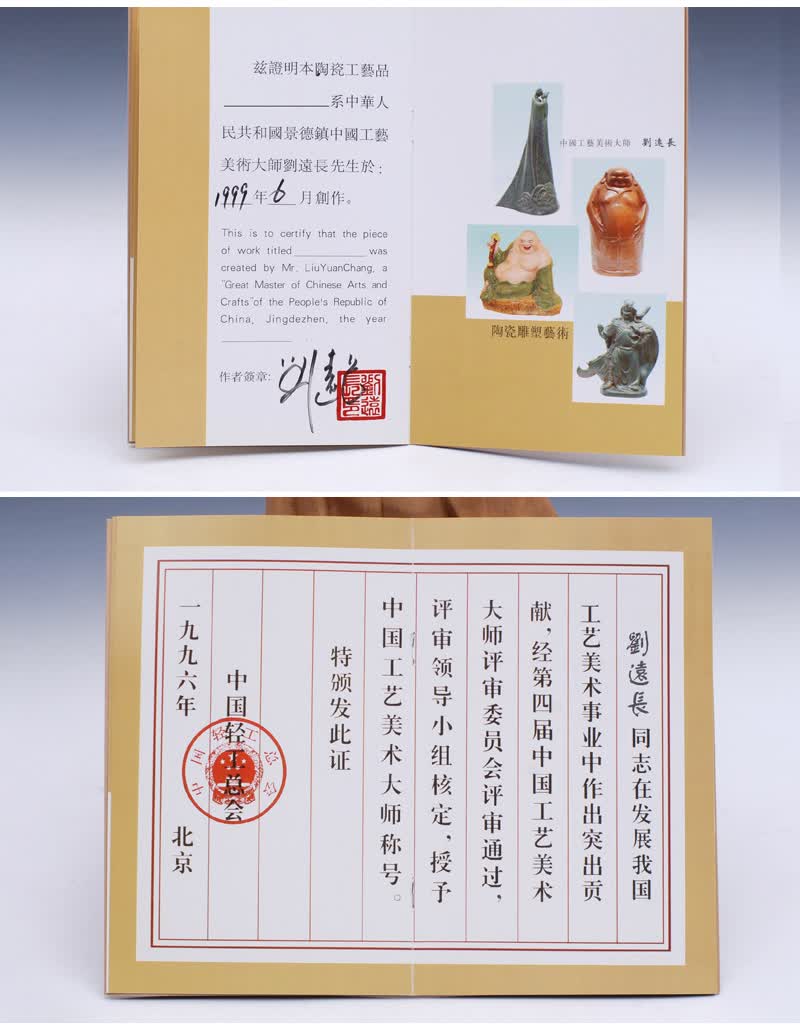 兹證明本陶瓷工藝品
系中華人
民共和國景德鎮中國工藝
美術大師劉遠長先生於：
1999年6月創作。
This is to certify that the piece
of work titled was
created by Mr. LiuYuanChang, a
"Great Master of Chinese Arts and
Crafts"of the People's Republic of
China, Jingdezhen, the year
作者簽章：劉遠長
劉遠長印
中國工藝美術大師 劉遠長
陶瓷雕塑藝術
劉遠長同志在发展我国
工艺美术事业中作出突出贡
献，经第四届中国工艺美术
大师评审委员会评审通过，
评审领导小组核定，授予
中国工艺美术大师称号。
特颁发此证
中国轻工总会
中国轻工总会
一九九六年 北京